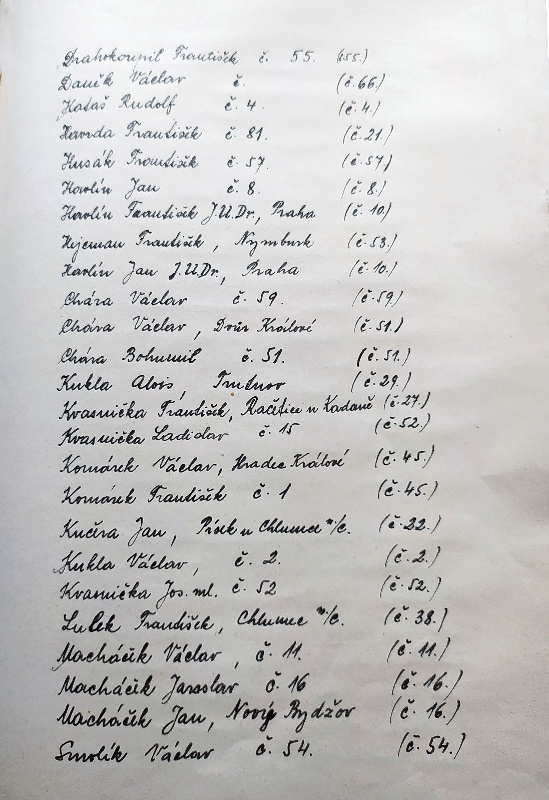 Drahokoupil František č. 55. (č55.)
Daněk Václav č. (č.66.)
Hataš Rudolf č. 4. (č.4.)
Havrda František č. 81. (č.21.)
Husák František č. 57. (č.57)
Havlín Jan č. 8. (č.8.)
Havlín František J.U.Dr., Praha (č.10.)
Hejcman František, Nymburk (č.53.)
Havlín Jan J.U.Dr., Praha (č.10.)
Chára Václav č. 59. (č.59)
Chára Václav, Dvůr Králové (č.51.)
Chára Bohumil č. 51. (č.51.)
Kukla Alois, Trutnov (č.29.)
Kvasnička František, Račetice u Kadaně (č.27.)
Kvasnička Ladislav č. 15 (č.52.)
Komárek Václav, Hradec Králové (č.45.)
Komárek František č. 1 (č.45.)
Kučera Jan, Písek u Chlumce n/c. (č.22.)
Kukla Václav, č. 2. (č.2.)
Kvasnička Jos. ml. č. 52 (č.52.)
Luček František, Chlumec n/c. (č.38.)
Macháčik Václav, č. 11. (č.11.)
Macháčik Jaroslav č. 16 (č.16.)
Macháčik Jan, Nový Bydžov (č.16.)
Smolík Václav č. 54. (č.54.)